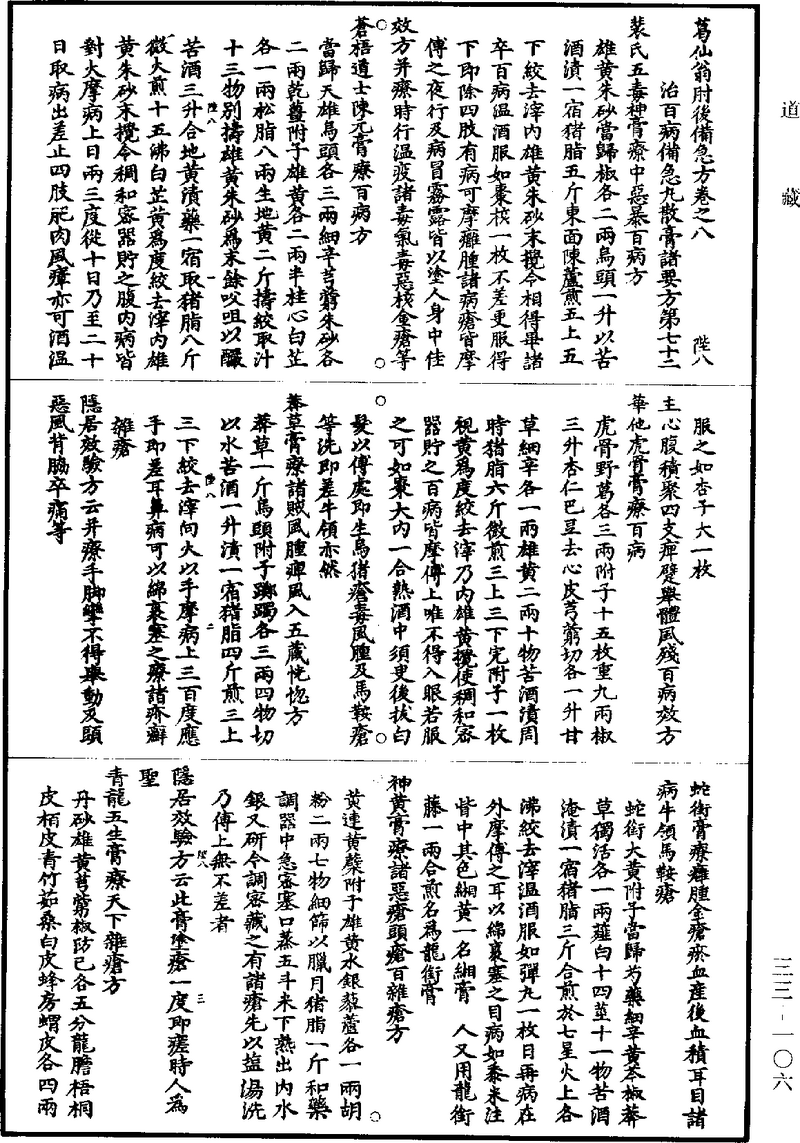 道藏
葛仙翁肘後備急方卷之八 陛八
治百病備急丸散膏諸要方第七十二
裴氏五毒神膏療中惡暴百病方
雄黃朱砂當歸椒各二兩烏頭一升以苦
酒漬一宿猪脂五斤東面陳蘆煎五上五
下絞去滓内雄黃朱砂末攪令相得畢諸
卒百病温酒服如棗核一枚不差更服得
下即除四肢有病可摩癰腫諸病瘡皆摩
傅之夜行及病冒霧露皆以塗人身中佳
效方并療時行温疫諸毒氣毒惡核金瘡等
蒼梧道士陳元膏療百病方
當歸天雄烏頭各三兩細辛芎藭朱砂各
二兩乾薑附子雄黃各二兩半桂心白芷
各一兩松脂八兩生地黃二斤擣絞取汁
十三物别擣雄黃朱砂爲末餘㕮咀以釅
苦酒三升合地黃漬藥一宿取猪脂八斤
微火煎十五沸白芷黃爲度絞去滓内雄
黃朱砂末攪令稠和密器貯之腹内病皆
對火摩病上日兩三度從十日乃至二十
日取病出差止四肢肥肉風瘴亦可酒温
服之如杏子大一枚
主心腹積聚四支痺躄舉體風殘百病效方
華他虎骨膏療百病
虎骨野葛各三兩附子十五枚重九兩椒
三升杏仁巴豆去心皮芎藭切各一升甘
草細辛各一兩雄黃二兩十物苦酒漬周
時猪脂六斤微煎三上三下完附子一枚
視黃爲度絞去滓乃内雄黃攪使稠和密
器貯之百病皆摩傅上唯不得入眼若服
之可如棗大内一合熱酒中須臾後拔白
髮以傅處即生烏猪瘡毒風腫及馬鞍瘡
等洗即差牛領亦然
莽草膏療諸賊風腫痺風入五藏恍惚方
莽草一斤烏頭附子躑躅各三兩四物切
以水苦酒一升漬一宿猪脂四斤煎三上
三下絞去滓向火以手摩病上三百度應
手即差耳鼻病可以綿裹塞之療諸疥癬
雜瘡
隱居效驗方云并療手脚攣不得舉動及頭
惡風背脇卒痛等
蛇銜膏療癰腫金瘡瘀血產後血積耳目諸
病牛領馬鞍瘡
蛇銜大黃附子當歸芍藥細辛黃芩椒莽
草獨活各一兩薤白十四莖十一物苦酒
淹漬一宿猪脂三斤合煎於七星火上各
沸絞去滓温酒服如彈丸一枚日再病在
外摩傅之耳以綿裹塞之目病如黍米注
眥中其色緗黃一名緗膏 人又用龍銜
藤一兩合煎名爲龍銜膏
神黃膏療諸惡瘡頭瘡百雜瘡方
黃連黃蘗附子雄黃水銀藜蘆各一兩胡
粉二兩七物細篩以臘月猪脂一斤和藥
調器中急密塞口蒸五斗米下熟出内水
銀又研令調密藏之有諸瘡先以塩湯洗
乃傅上無不差者
隱居效驗方云此膏塗瘡一度即瘥時人爲
聖
青龍五生膏療天下雜瘡方
丹砂雄黃芎藭椒防己各五分龍膽梧桐
皮栢皮青竹茹桑白皮蜂房蝟皮各四兩
陛八 一
陛八 二
陛八 三
三三－一〇六